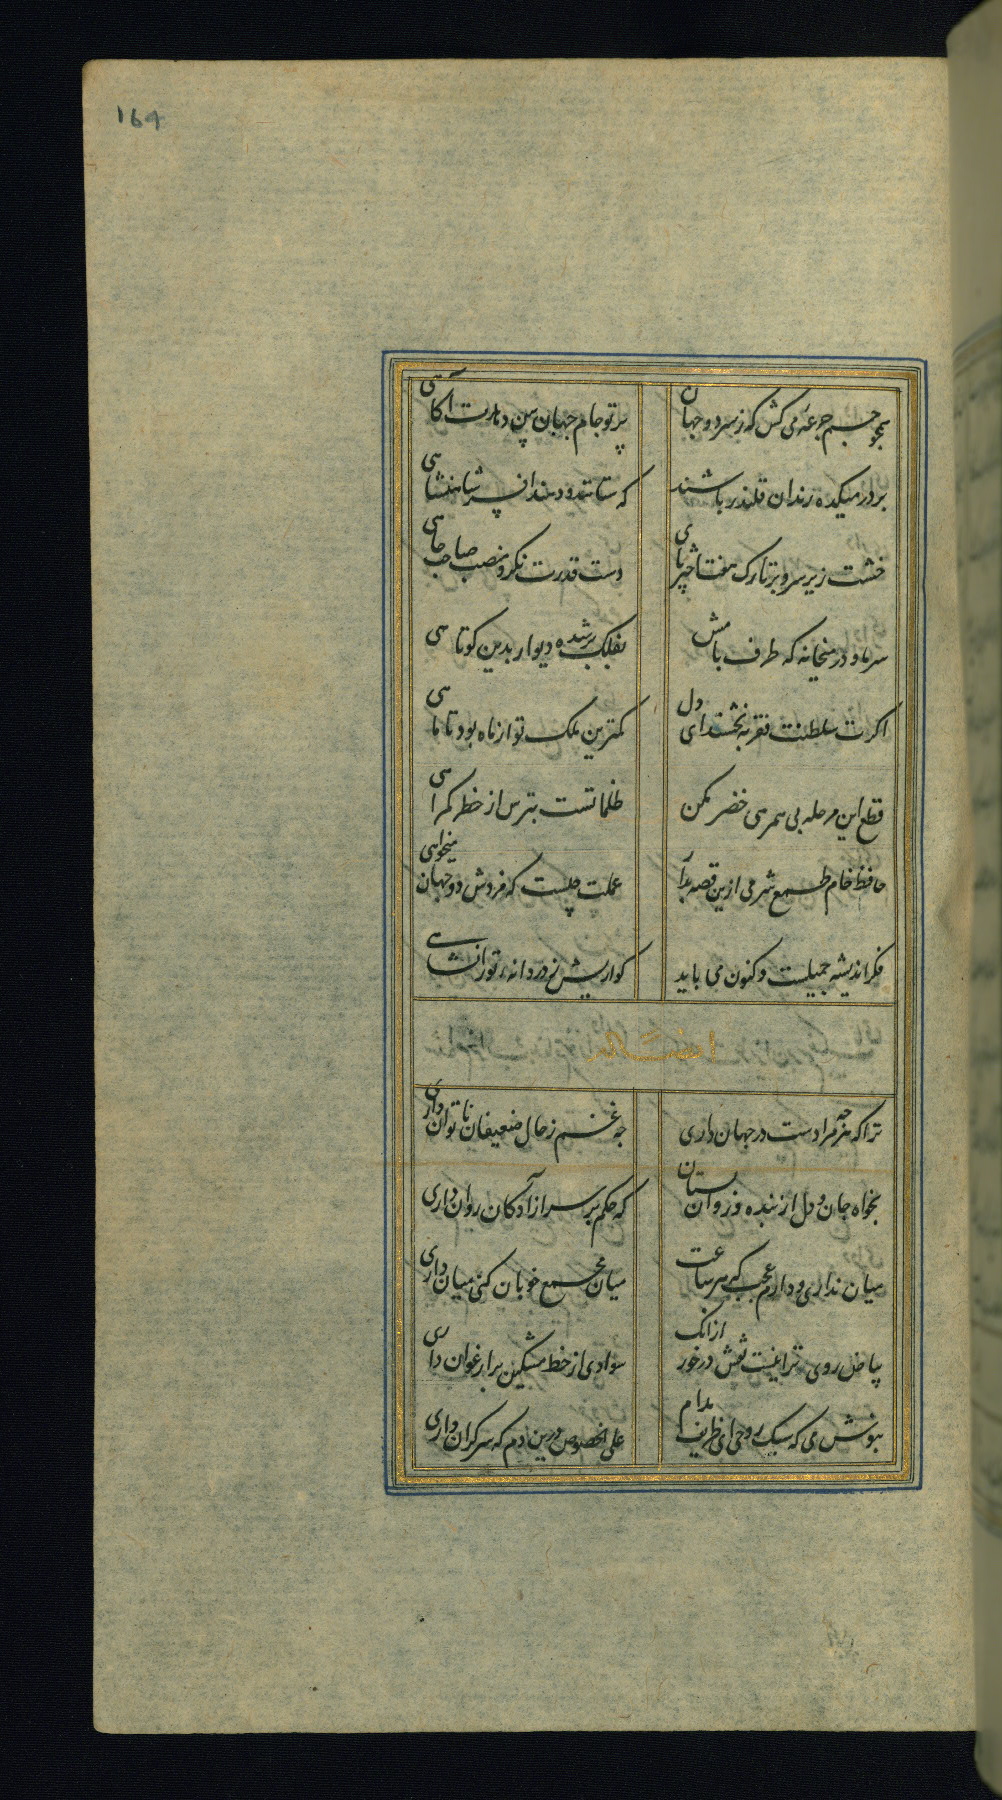 169
همچو جم جرعهٔ می کش که ز سر دو جهان
پرتو جام جهان بین دهدت آکاهی
بر در میکده رندان قلندر باشند
که ستانند و دهند افسر شاهنشاهی
خشت زیر سر و بر تارک هفت اختر پای
دست قدرت نکر و منصب صاحب جاهی
سر ما و در میخانه که طرف بامش
بفلک بر شده دیوار بدین کوتاهی
اکرت سلطنت فقر ببخشند ای دل
کمترین ملک تو از ماه بود تا ماهی
قطع این مرحله بی همرهی خضر مکن
ظلماتست بترس از خطر کمراهی
حافظ خام طمع شرمی ازین قصه بدآ
عملت چیست که فردش دو جهان میخواهی
فکر اندیشه جمیلست و کنون می باید
ایضا له
ترا که هرچه مرادست در جهان داری
چه غم ز حال ضعیفان ناتوان داری
بخواه جان و دل از بنده و روان بستان
که حکم بر سر آزادکان روان داری
میان نداری و دارم عجب که هر ساعت
میان مجمع خوبان کنی میان داری
بیاض روی ترا نیست نقش درخور ازانک
سوادی از خط مشکین بر ارغوان داری
بنوش می که سبک روحی ای ظریف مدام
علی الخصوص درین دم که سر کران داری